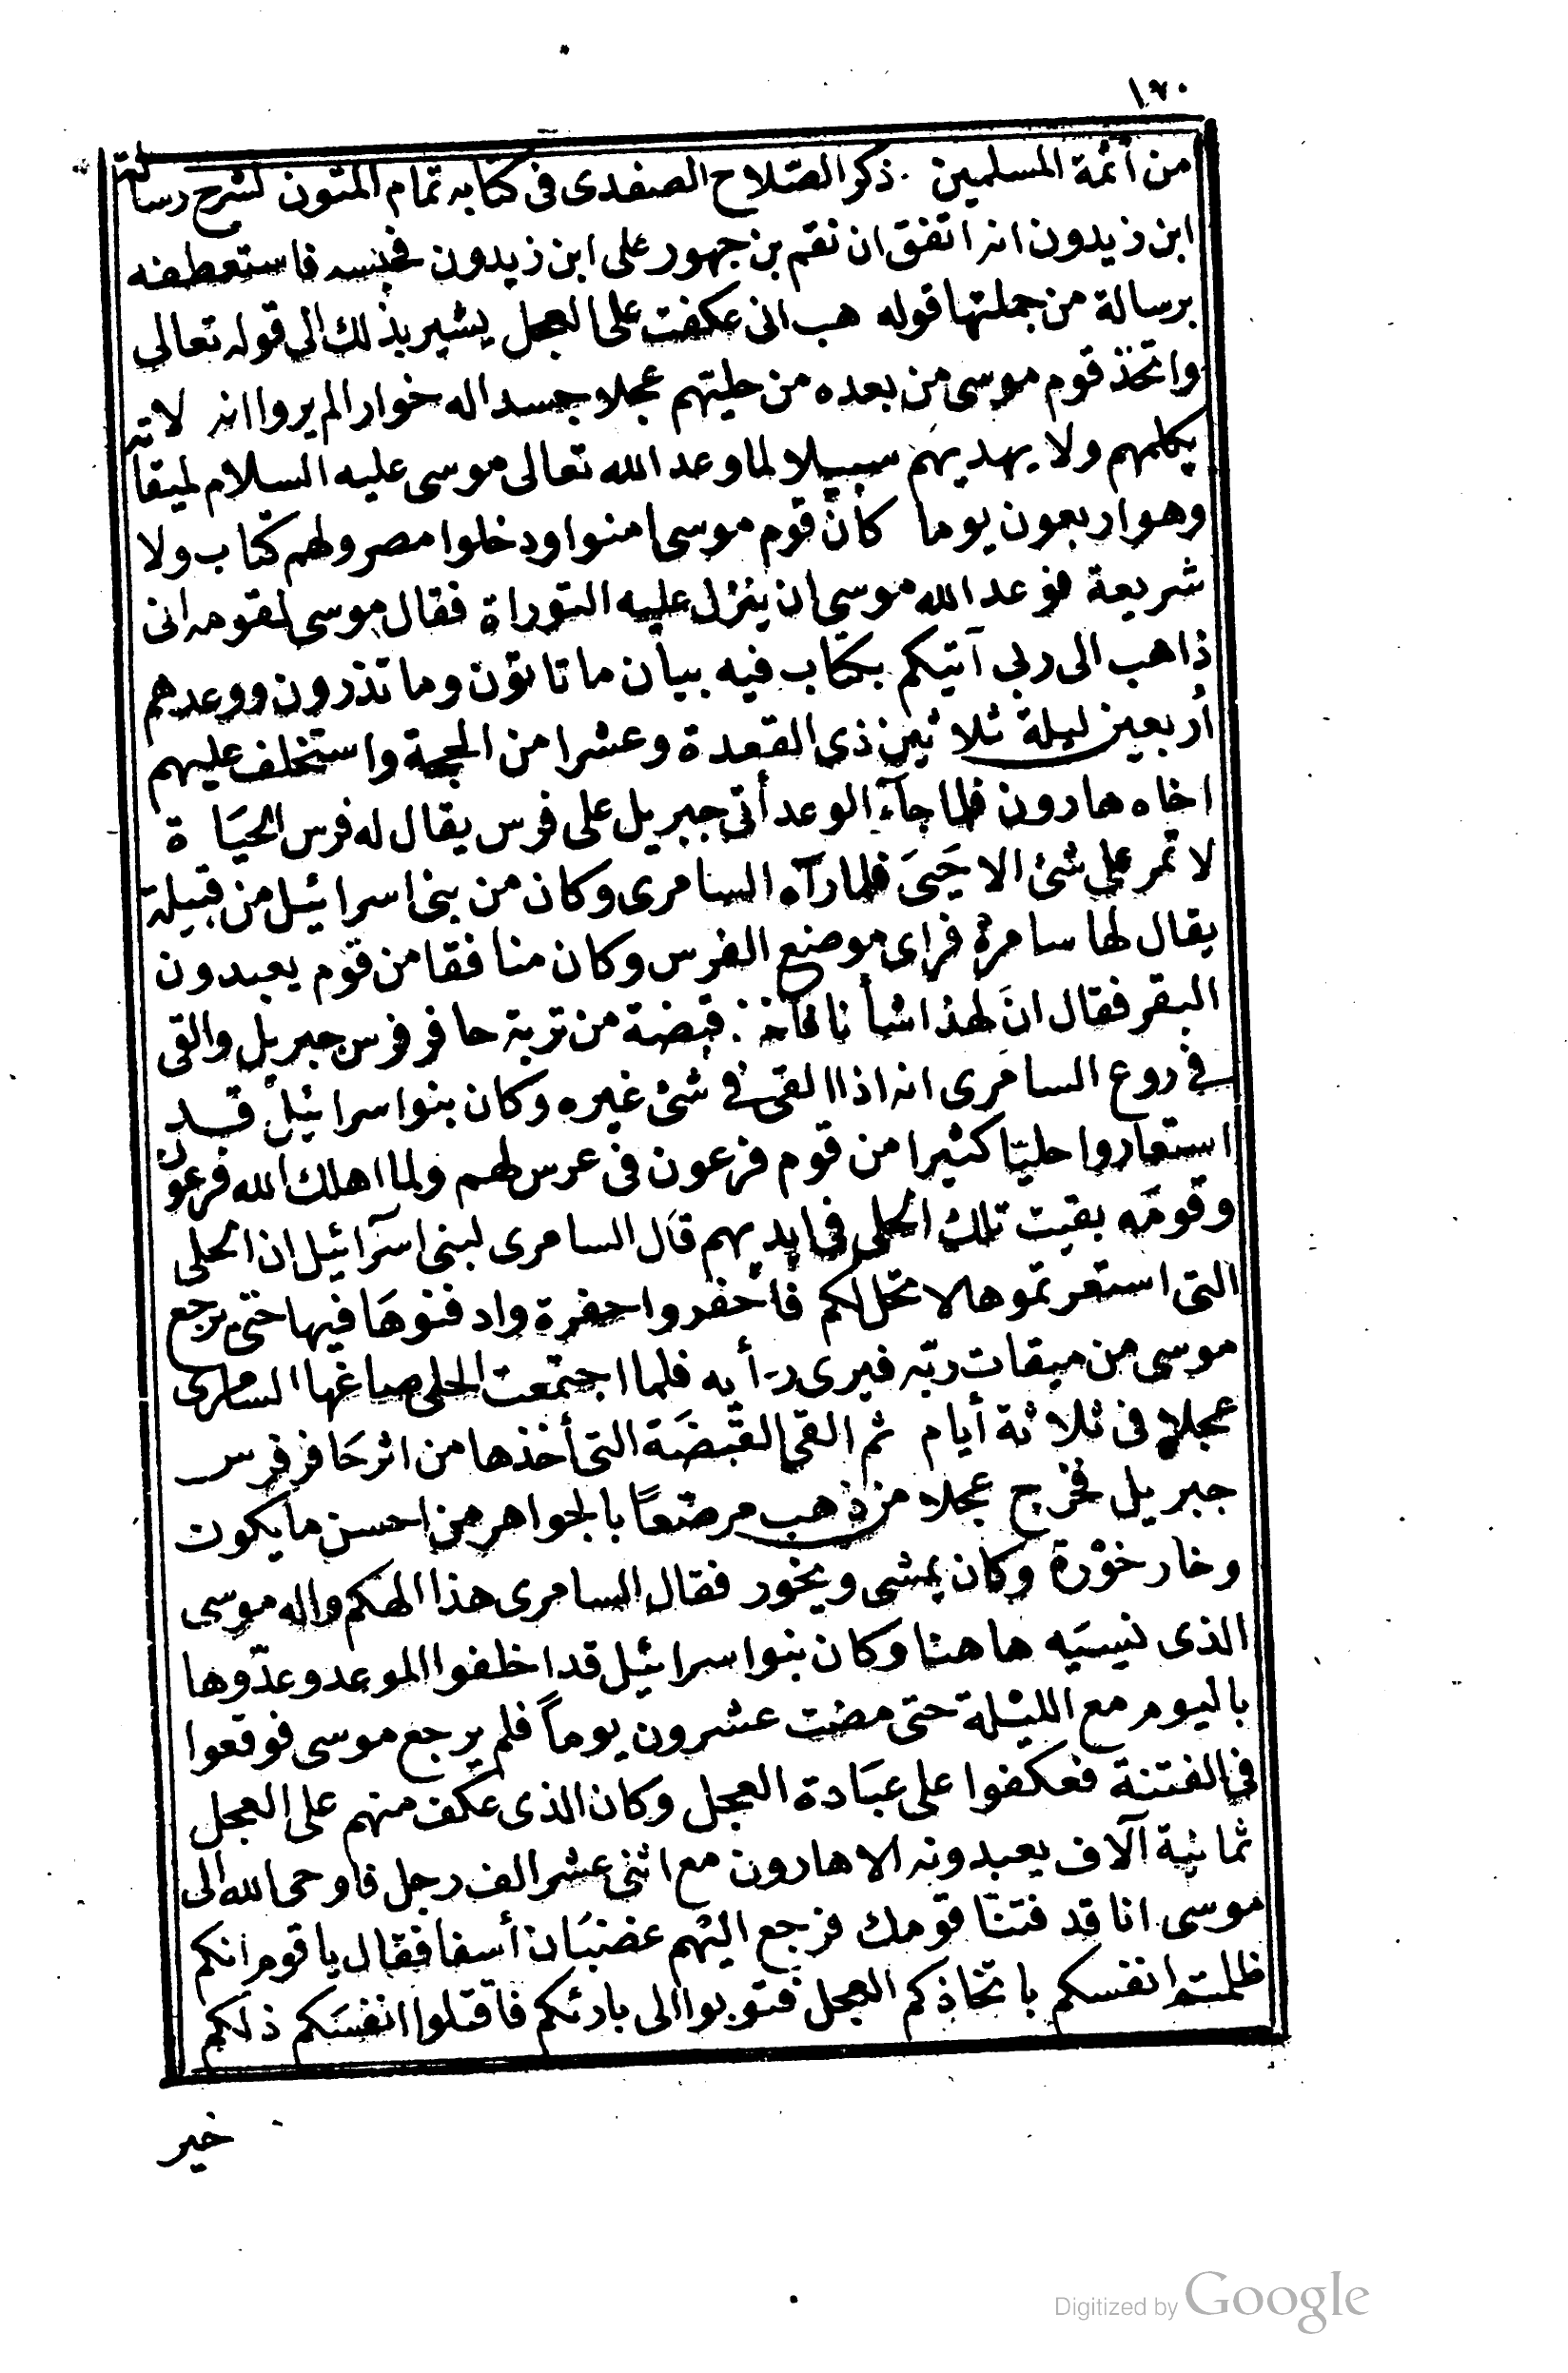 ١٧٠
من أئمة المسلمين . ذكر الصّلاح الصفدى فى كتابه تمام المتون لشرح رسالة
ابن زيدون انه اتفق ان نقم بن جهور على ابن زيدون فحبسه فاستعطفه
برسالة من جملتها قوله هب انى عكفت على العجل يشير بذلك الى قوله تعالى
واتخذ قوم موسى من بعده من حليتهم عجلا جسدا له خوار الم يروا انه لا
يكلمهم ولا يهديهم سبيلا لما وعد الله تعالى موسى عليه السلام لميقاته
وهو اربعون يوما كان قوم موسى امنوا ودخلوا مصر ولهم كتاب ولا
شريعة فوعد الله موسى ان ينزل عليه التوراة فقال موسى لقومه انى
ذاهب الى ربى آتيكم بكتاب فيه بيان ما تاتون وما تذرون ووعدهم
أربعين ليلة ثلاثين ذى القعدة وعشرا من الحجة واستخلف عليهم
اخاه هارون فلما جآء الوعد أتى جبريل على فرس يقال له فرس الحيَاة
لا تمر على شئ الا حَيىَ فلما رآه السامرى وكان من بنى اسرائيل من قبيلة
يقال لها سامرة فراى موضع الفرس وكان منافقا من قوم يعبدون
البقر فقال انَ لهذا شأنا فأخذ قبضة من تربة حافر فرس جبريل والقى
فى روع السامرى انه اذا القى فى شئ غيره وكان بنوا سرائيل قد
استعاروا حليّا كثيرا من قوم فرعون فى عرس لهم ولما اهلك الله فرعون
وقومَه بقيت تلك الحلى فى ايديهم قال السامرى لبنى اسرآئيل ان الحلى
التى استعرتموها لا تحل لكم فأحفروا حفرة وادفنوهَا فيها حتى يرجع
موسى من ميقات ربّه فيرى رَأيه فلما اجتمعت الحلى صاغها السامرى
عجلا فى ثلاثة أيام ثم القى القبضَة التى أخذها من اثر حَافر فرس
جبريل فخرج عجلا من ذهب مرصّعًا بالجواهر من احسن ما يكون
وخار خوْرة وكان يمشى ويخور فقال السامرى هذا الهكم واله موسى
الذى نيسيَه هاهنا وكان بنوا سرائيل قد اخلفوا الموعد وعدّوها
باليوم مع الليْلة حتى مضت عشرون يوماً فلم يرجع موسى فوقعوا
فى الفتنة فعكفوا على عبَادة العجل وكان الذى عكف منهم على العجل
ثمانية آلاف يعبدونه الا هارون مع اثنى عشر الف رجل فاوحى الله الى
موسى انا قد فتنّا قومك فرجع اليْهم غضبَان أسفا فقال يا قوم انكم
ظلمتم انفسكم باتخاذكم العجل فتوبوا الى بارئكم فاقتلوا انفسَكم ذلكم
خير
Digitized by Google